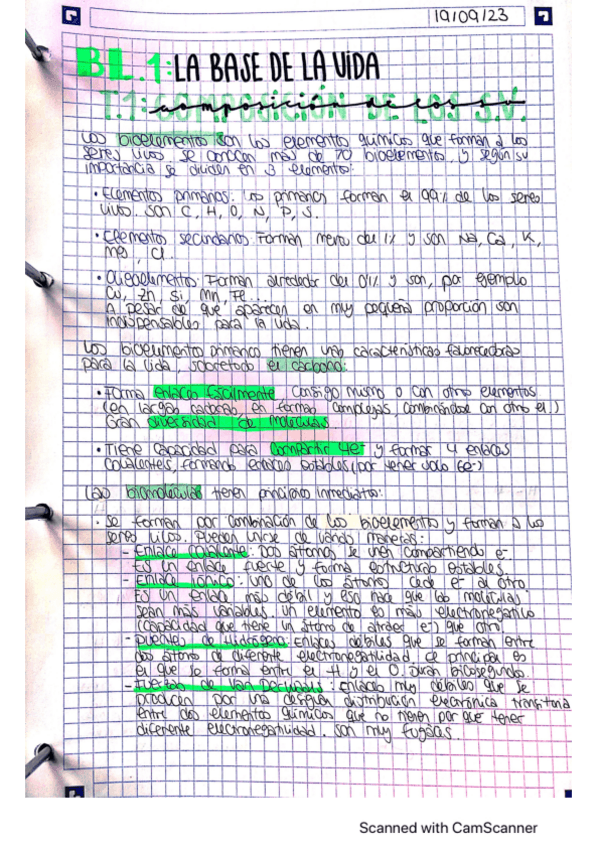 19/09/23
BL.1: LA BASE DE LA VIDA
T.1: COMPOSICIÓN DE LOS S.V.
Los bioelementos son los elementos químicos que forman a los
seres vivos. Se conocen más de 70 bioelementos, y según su
importancia se dividen en 3 elementos:
• Elementos primarios: Los primarios forman el 99% de los seres
vivos. Son C, H, O, N, P, S.
• Elementos secundarios. Forman menos del 1% y son Na, Ca, K,
Mg, Cl.
• Oligoelementos: Forman alrededor del 0'1% y son, por ejemplo
Cu, Zn, Si, Mn, Fe...
A pesar de que aparecen en muy pequeña proporción son
indispensables para la vida.
Los bioelementos primarios tienen unas características favorecedoras
para la vida, sobretodo el carbono:
• Forma enlaces fácilmente, consigo mismo o con otros elementos
(en largas cadenas, en formas complejas, combinándose con otro el.)
Gran diversidad de moléculas.
• Tiene capacidad para compartir 4e- y formar 4 enlaces
covalentes, formando enlaces estables (por tener solo 6e-)
Las biomoléculas tienen principios inmediatos:
• Se forman por combinación de los bioelementos y forman a los
seres vivos. Pueden unirse de varias maneras:
- Enlace covalente: Dos átomos se unen compartiendo e-.
Es un enlace fuerte y forma estructuras estables.
- Enlace iónico: uno de los átomos cede e- al otro.
Es un enlace más débil y eso hace que las moléculas
sean más variables. un elemento es más electronegativo
(capacidad que tiene un átomo de atraer e-) que otro
- Puentes de hidrógeno: Enlaces débiles que se forman entre
dos átomos de diferente electronegatividad, el principal es
el que se forma entre el H y el O. Duran
- Fuerzas de Van Der Waals: Enlaces muy débiles que se
producen por una desigual distribución electrónica transitoria
entre dos elementos químicos que no tienen por que tener
diferente electronegatividad. Son muy fugaces.
Scanned with CamScanner